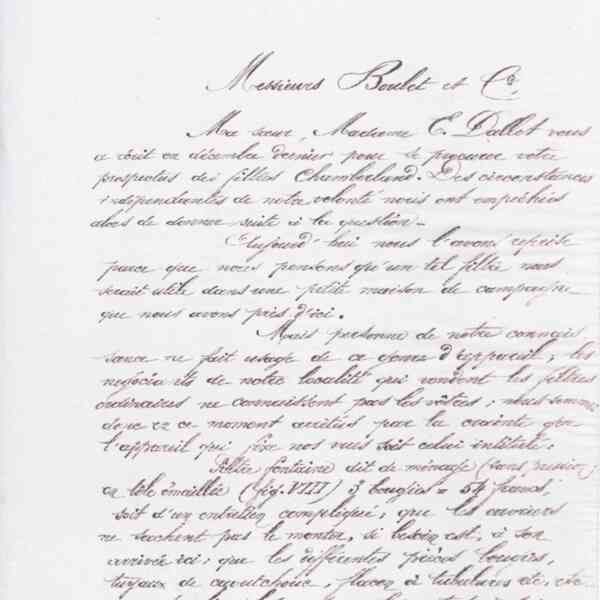 Messieurs Boulet et Cie
Ma sœur, Madame E. Dallet vous
a écrit en décembre dernier pour se procurer votre
prospectus des filtres Chamberland. Des circonstances
indépendantes de notre volonté nous ont empêchés
alors de donner suite à la question.
Aujourd'hui nous l'avons reprise
parce que nous pensons qu'un tel filtre nous
serait utile dans une petite maison de campagne
que nous avons près d'ici.
Mais personne de notre connais
sance ne fait usage de ce genre d'appareil ; les
négociants de notre localité qui vendent les filtres
ordinaires ne connaissent pas les vôtres ; nous sommes
donc en ce moment arrêtés par la crainte que
l'appareil qui fixe nos vues soit celui intitulé :
Filtre fontaine dit de ménage (sans pression)
en tôle émaillée (fig. VIII) 3 bougies = 54 francs,
soit d'un entretien compliqué, que les ouvriers
ne sachent pas le monter, si besoin est, à son
arrivée ici ; que les différentes pièces bougies,
tuyaux de caoutchouc, flacon à tubulures etc, etc